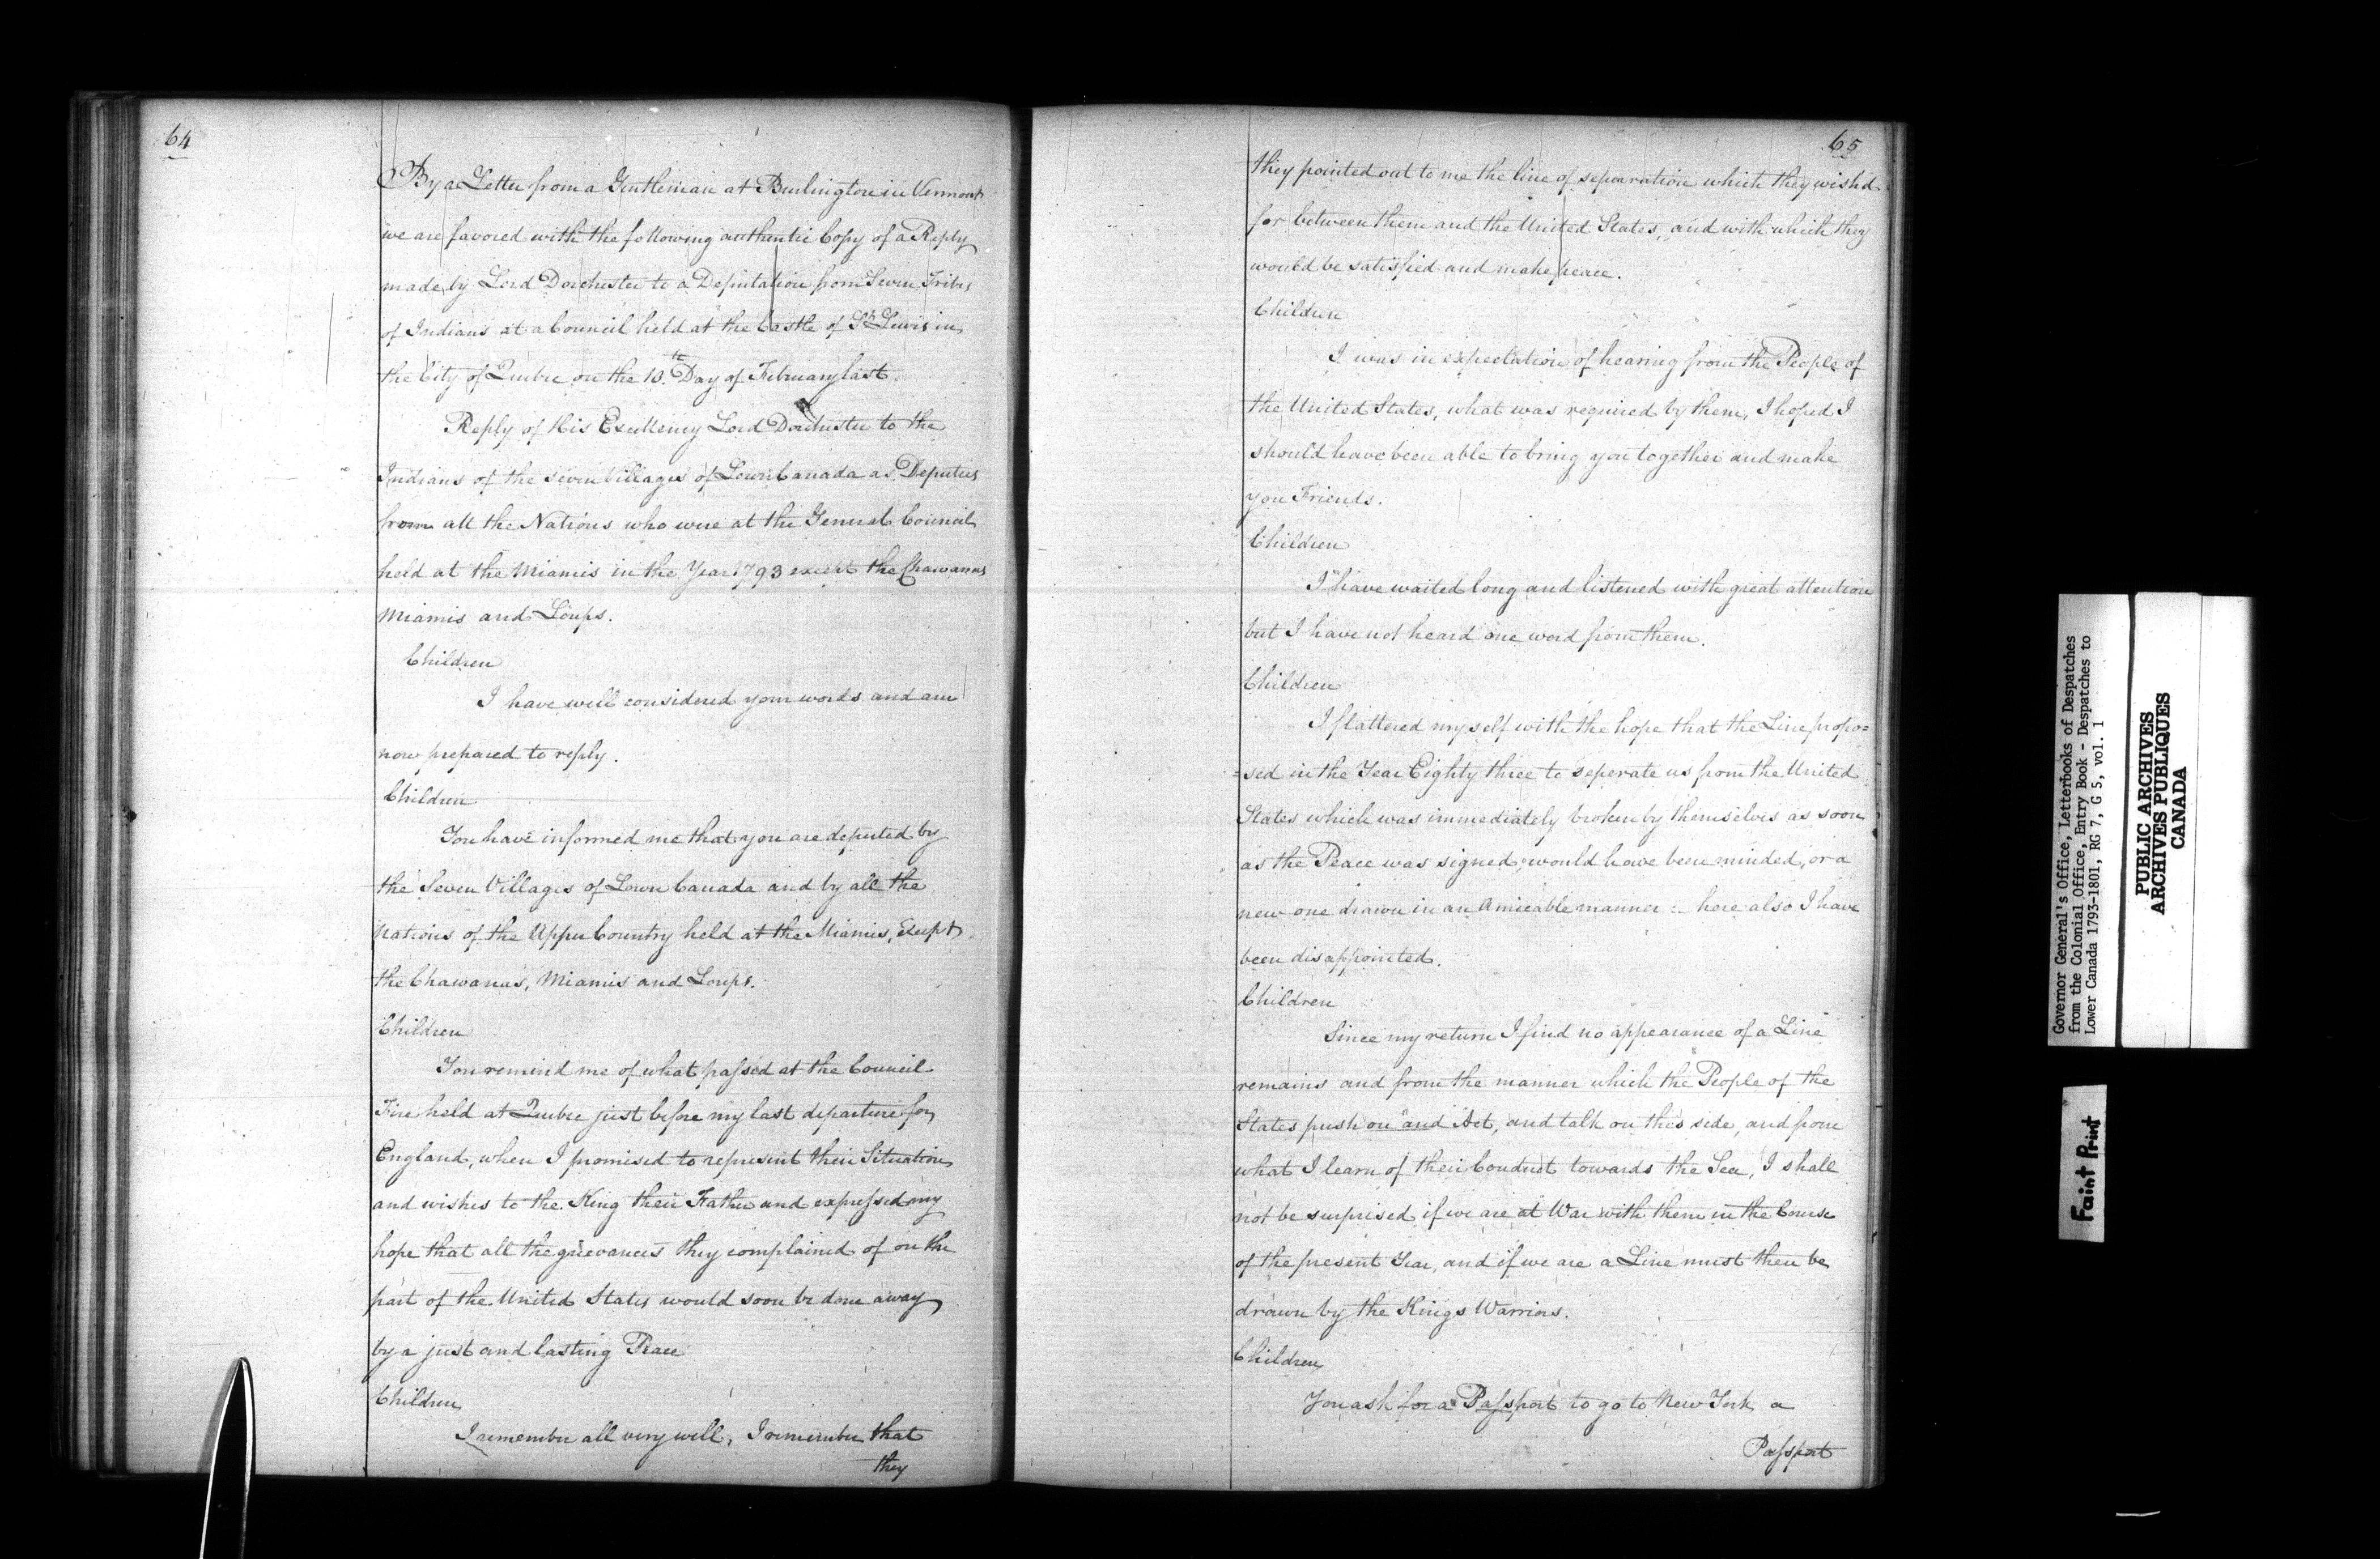 64
By a Letter from a Gentleman at Burlington in Vermont
we are favored with the following authentic Copy of a Reply
made by Lord Dorchester to a Deputation from Seven Tribes
of Indians at a Council held at the Castle of St. Lewis in
the City of Quebec on the 10.th Day of February last.
Reply of His Excellency Lord Dorchester to the
Indians of the seven Villages of Lower Canada as Deputies
from all the Nations who were at the General Council
held at the Miamis in the Year 1793 except the Chawanas
Miamis and Loups.
Children
I have well considered your words and am
now prepared to reply.
Children
You have informed me that you are deputed by
the Seven Villages of Lower Canada and by all the
Nations of the Upper Country held at the Miamis, Except
the Chawanas, Miamis and Loups.
Children
You remind me of what passed at the Council
Fire held at Quebec just before my last departure for
England, when I promised to represent their Situation
and wishes to the King their Father and expressed my
hope that all the grievances they complained of on the
part of the United States would soon be done away
by a just and lasting Peace
Children
I remember all very well, I remember that
they
65
they pointed out to me the line of separation which they wish'd
for between them and the United States, and with which they
would be satisfied and make peace.
Children
I was in expectation of hearing from the People of
the United States, what was required by them, I hoped I
should have been able to bring you together and make
you Friends.
Children
I have waited long and listened with great attention
but I have not heard one word from them.
Children
I flattered myself with the hope that the Line propo=
=sed in the Year Eighty three to seperate us from the United
States which was immediately broken by themselves as soon
as the Peace was signed would have been minded, or a
new one drawn in an Amicable manner :- here also I have
been disappointed.
Children
Since my return I find no appearance of a Line
remains and from the manner which the People of the
States push on and Act, and talk on this side, and from
what I learn of their Conduct towards the Sea, I shall
not be surprised if we are at War with them in the Course
of the present Year, and if we are a Line must then be
drawn by the Kings Warriors.
Children
You ask for a Passport to go to New York a
Passport
Governor General's Office, Letterbooks of Despatches
from the Colonial Office, Entry Book - Despatches to
Lower Canada 1793-1801, RG 7, G 5, vol. 1
PUBLIC ARCHIVES
ARCHIVES PUBLIQUES
CANADA
Faint Print